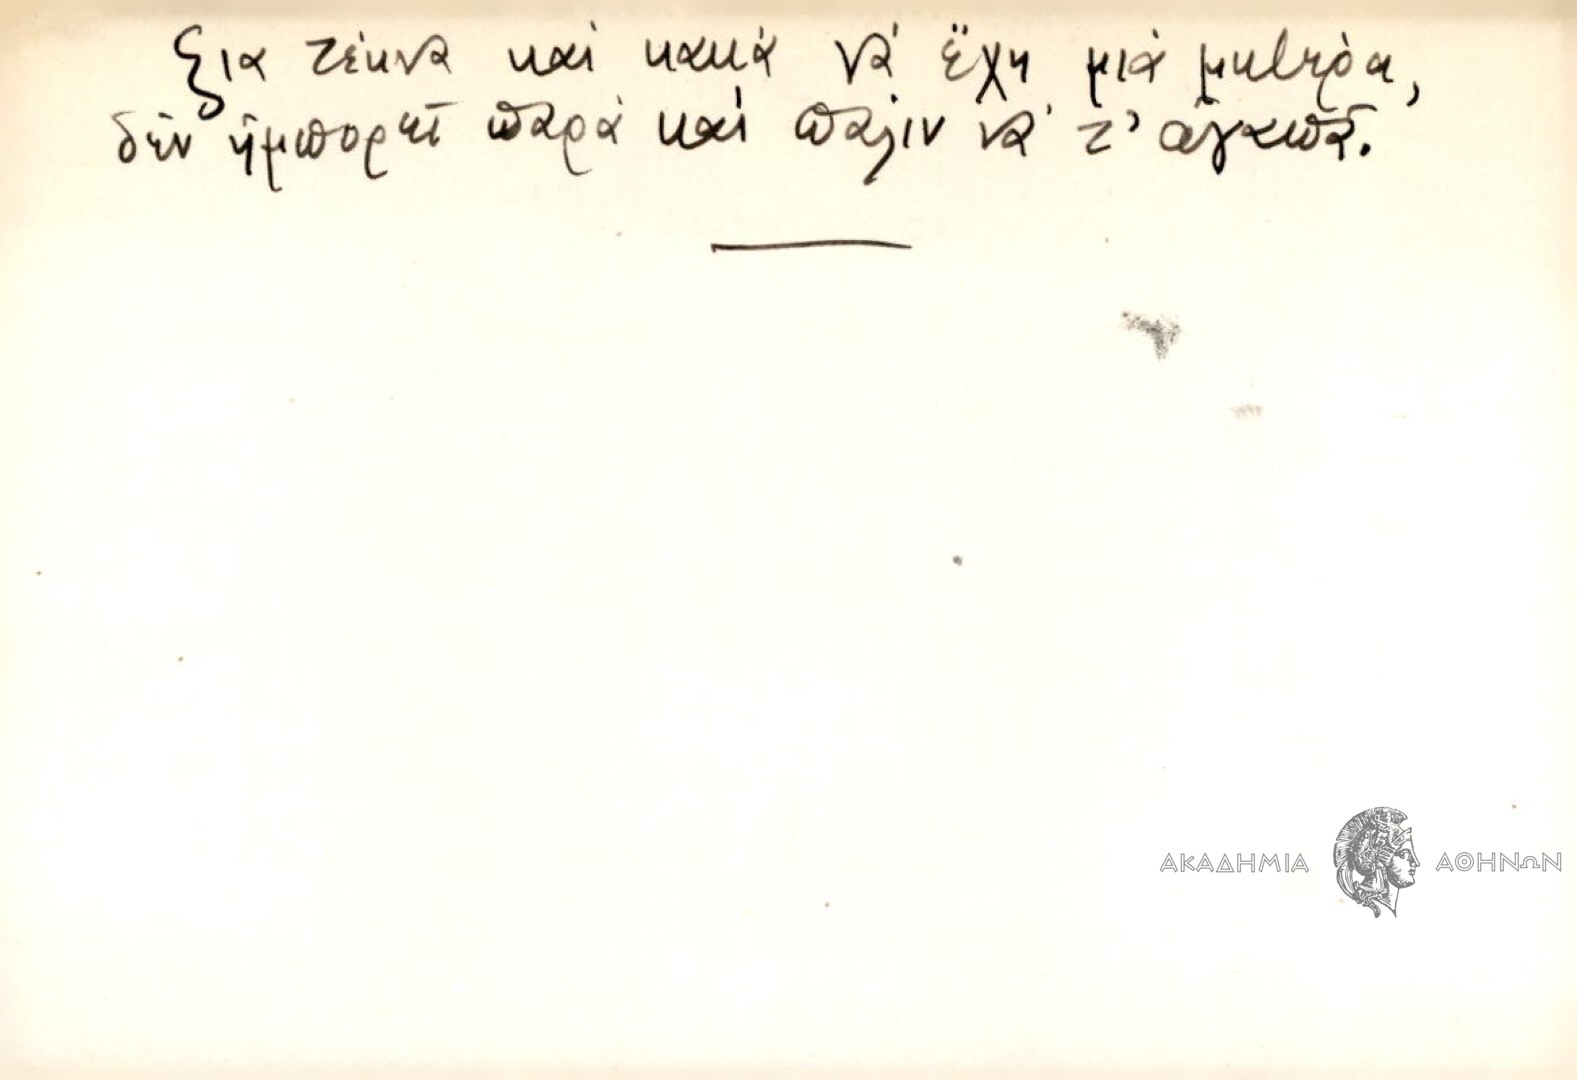 ξια τέκνα καὶ κακά νά ἔχῃ μιά μητέρα,
δέν ἠμπορεῖ παρά καί πάλιν νά τ' ἀγαπᾶ.
ΑΚΑΔΗΜΙΑ ΑΘΗΝΩΝ